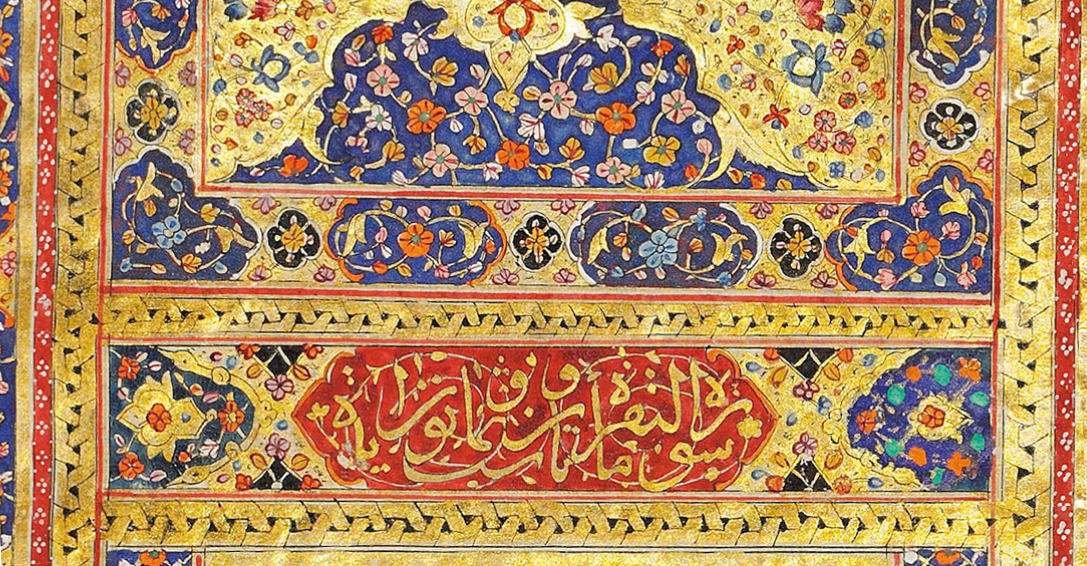 سورة البقرة مائتان وست وثمانون اية